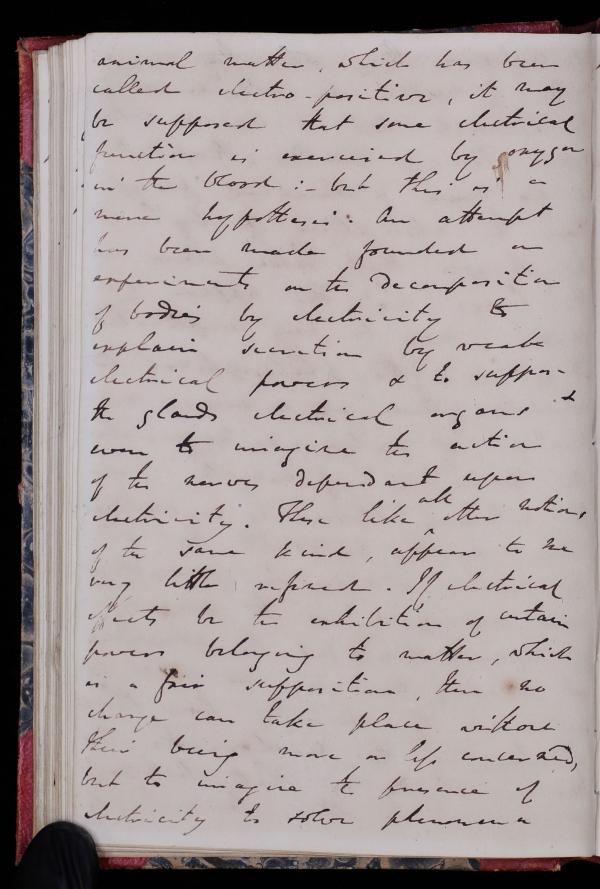 animal matter, which has been
called electro-positive, it may
be supposed that some electrical
function is exercised by oxygen
in the blood :- but this is a
mere hypothesis. An attempt
has been made founded on
experiments on the decomposition
of bodies by electricity to
explain secretion by weak
electrical powers & to suppose
the glands electrical organs &
even to imagine the action
of the nerves dependant upon
electricity. These like all other notions
of the same kind, appear to me
very little refined. If electrical
effects be the exhibition of certain
powers belonging to matter, which
is a fair supposition, then no
change can take place without
their being more or less concerned,
but to imagine the presence of
electricity to solve phenomena